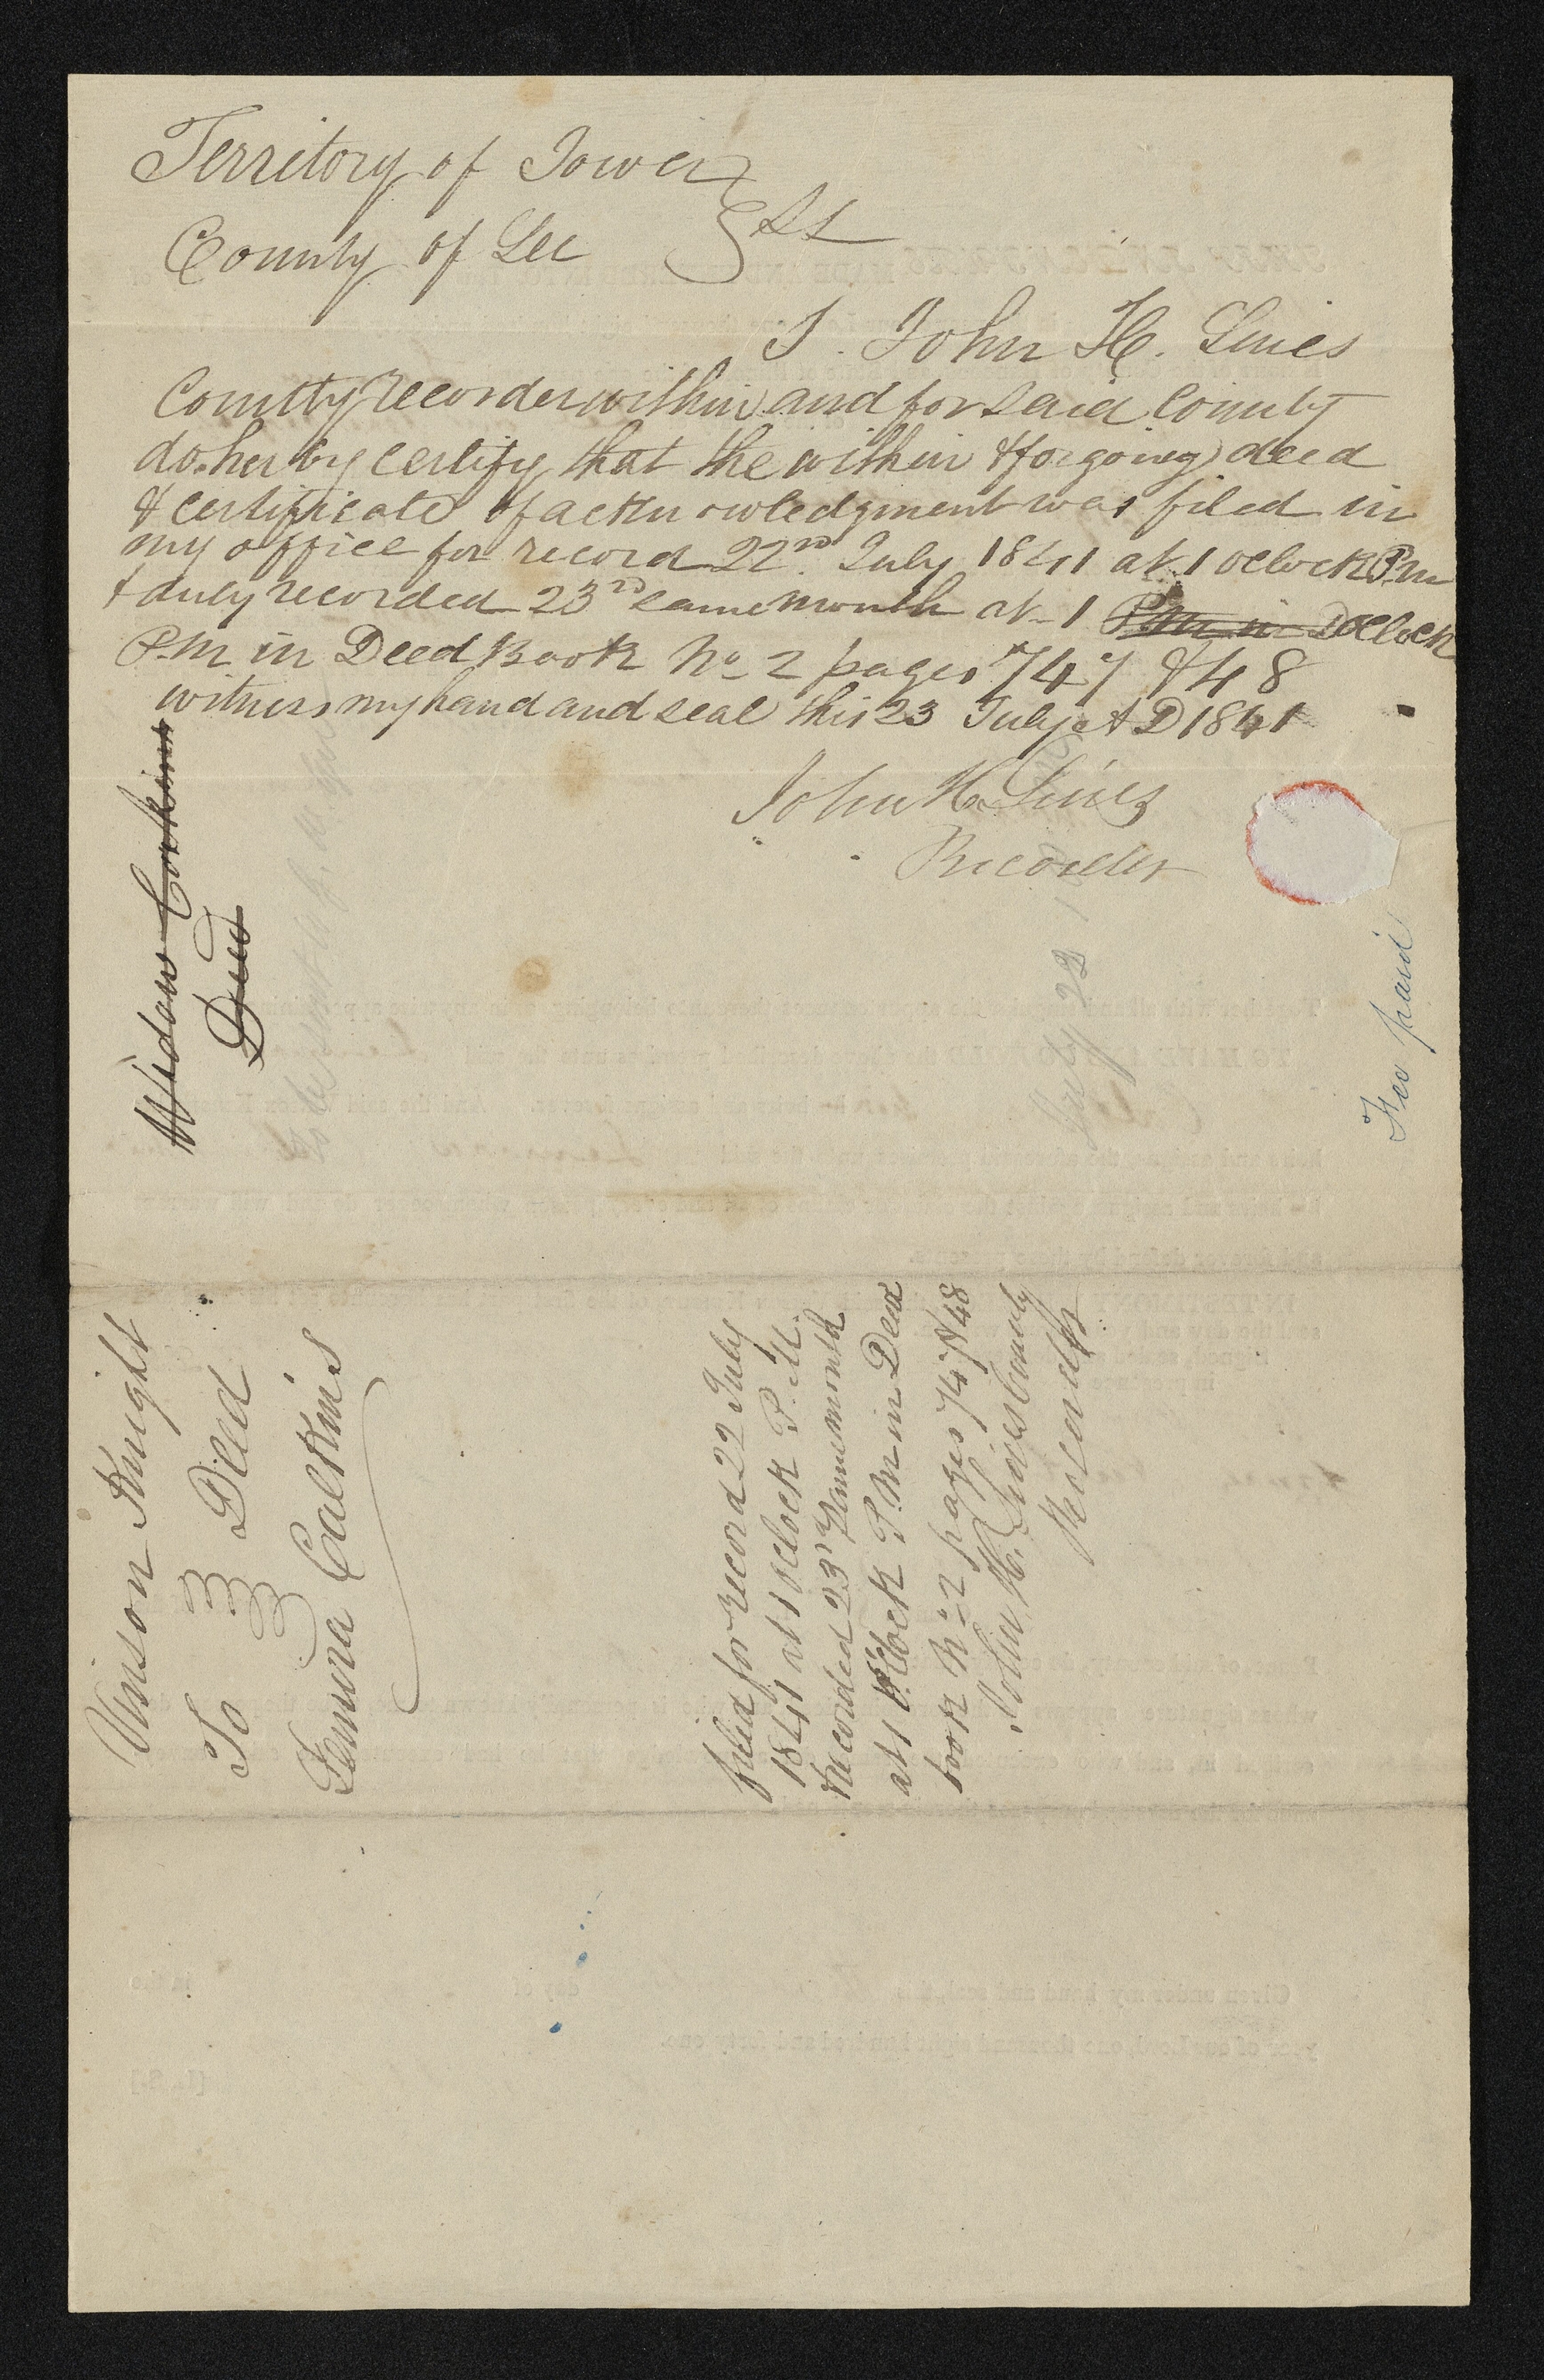 Territory of Iowa }
County of Lee } SS
I. John H. Lines
Countty recorder within and for said County
do herby certify that the within & forgoing deed
& certificate of acknowledgment was filed in
my office for record 22nd July 1841 at 1 oclock P.m
& duly recorded 23rd same month at 1 P.M in D oclock
P.M in Deed Book No 2 pages 747 & 48
witness my hand and seal this 23 July A D 1841
John H. Lines
Recorder
Widow Corkins
Deed
Fee paid
July 22
Vinson Knight
To } Deed
Lemira Calkins
filed for record 22 July
1841 at 1 oclock P. M.
& recorded 23rd same month
at 1 oclock P. M in Deed
book No 2 pages 747 & 48
John H. Lines County
Recorder